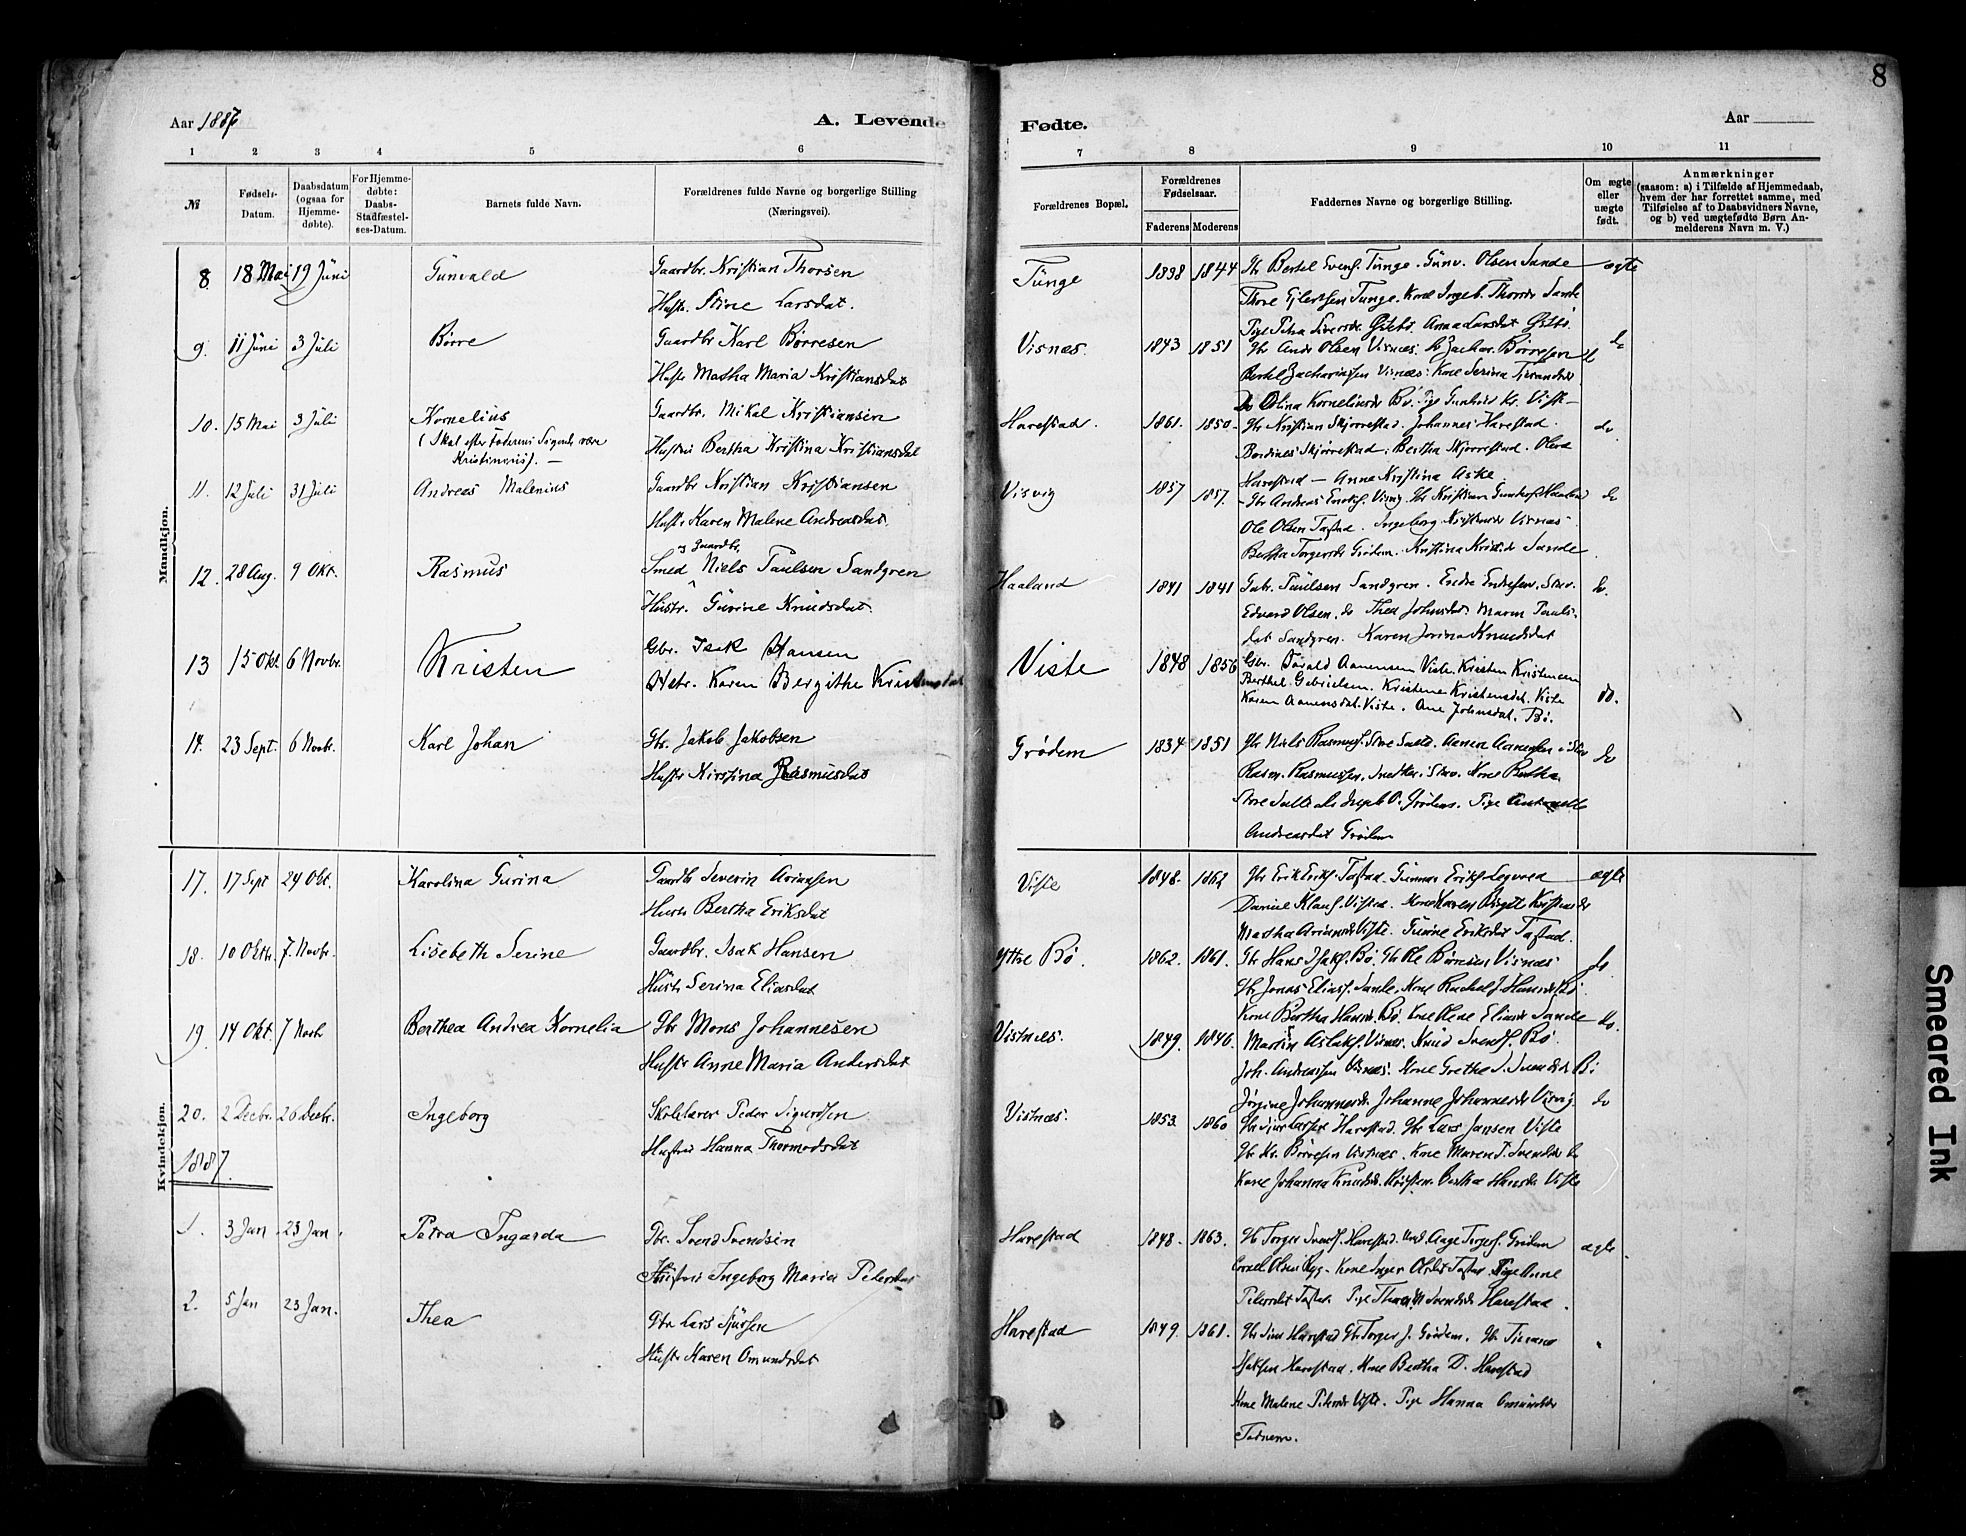 8
Aar 1887
A. Levende
Fødte.
Aar
1 2 3 4 5 6 7 8 9 10 11
№
Fødsels-
Datum.
Daabsdatum
(ogsaa for
Hjemme-
døbte).
For Hjemme-
døbte:
Daabs-
Stadfæstel-
ses-Datum.
Barnets fulde Navn.
Forældrenes fulde Navne og borgerlige Stilling
(Næringsvei).
Forældrenes Bopæl.
Forældrenes
Fødselsaar.
Faderens Moderens
Faddernes Navne og borgerlige Stilling.
Om ægte
eller
uægte
født.
Anmærkninger
(saasom: a) i Tilfælde af Hjemmedaab,
hvem der har forrettet samme, med
Tilføielse af to Daabsvidners Navne,
og b) ved uægtefødte Børn An-
melderens Navn m. V.)
Mandkjøn.
8. 18 Mai 19 Juni Gunvald Gaardbr. Kristian Thorsen Tunge 1838 1844 Gbr Bertel Svens. Tunge. Gunv. Olsen Sande ægte
Hustr. Stine Larsdat. Thore Ejlertsen Tunge. Kone Ingeb. Thorsdr Sande
Pige Petra Siversdr. Østebø. Anna Larsdat Østbø.
9. 11 Juni 3 Juli Børre Gaardbr Karl Børresen Visnæs. 1843 1851 Gbr Andr Olsen Visnæs. do Zachar. Børresen do
Hustr Martha Maria Kristiansdat Bertel Zachariassen Visnæs. Kone Serina
do Olina Korneliusdr Bø. Pige Gunhild Kr.
10. 15 Mai 3 Juli Kornelius Gaardbr. Mikal Kristiansen Harestad. 1861. 1850. Gbr Kristian Skjørrestad. Johannes Harestad. do.
(Skal efter Faderens Sigende være
Kristinius). —
Hustru Bertha Kristina Kristiansdat Berdines Skjørrestad. Bertha Skjørrestad. Olava
Harestad — Anna Kristina Aske
11. 12 Juli 31 Juli Andreas Malenius Gaardbr Kristian Kristiansen Visvig 1857 1857. Gbr Andreas Enoks. Visvig. Gbr Kristian do
Hustr Karen Malene Andreasdat. Ole Olsen Tastad. Ingeborg Kristensdr Visnæs
Bertha Torgersdr Grødem. Kristina Kristdr Sande
12. 28 Aug. 9 Okt. Rasmus Smed og Gaardbr. Niels Paulsen Sandgren Haaland 1841 1841 Gabr. Paulsen Sandgren. Endre Endresen. Stav. do.
Hustr. Gurine Knudsdat. Edvard Olsen. do Thea Johnsdat. Maren Pauls-
dat Sandgren. Karen Jorina Knudsdat
13 15 Okt 6 Novbr. Kristen Gbr. Isak Hansen Viste 1848 1856 Gbr. Torald Aanensen Viste. Kristen Kristensen
Hstr. Karen Bergithe Kristensdat Berthel Gabrielsen. Kristene Kristensdat. Viste do.
Karen Aanensdat. Viste. Ane Johnsdat. Bø.
14. 23 Sept. 6 Novbr. Karl Johan Gbr. Jakob Jakobsen Grødem 1834 1851 Gbr Niels Rasmus. Store Salte. Aanen Aanensen i Stav do
Hustr Kirstina Rasmusdat Rasm. Rasmussen. Snedker. Stav. Kone Bertha
Store Salte. do Ingeb O. Grødem. Pige
Andreasdat Grødem
Kvindekjøn.
17. 17 Sept 24 Okt. Karolina Gurina Gaardb. Severin Ariansen Viste 1848. 1862 Gbr Erik Eriks. Tastad. Gunnar Eriks. Legvold ægte
Hustr Bertha Eriksdat Daniel Klaus. Vistad. Kone Karen Birgite Kristensdr
Martha Ariansdr Viste. Gurine Eriksdat Tastad.
18. 10 Oktb. 7. Novbr. Lisebeth Serine Gaardbr. Isak Hansen Ytre Bø. 1862. 1861. Gbr Hans Isaks. Bø. Gb Ole Børresen Visnæs do
Hustr Serina Eliasdat Gbr Jonas Elias. Sande. Kone Rachel J. Hansdr Bø.
Kone Bertha Hansdr. Bø. Kone Elene Eliasdr Sande
19. 14 Okt. 7 Novb Berthea Andrea Kornelia Gbr Mons Johannesen Vistnæs. 1849. 1846. Martin Aslaks. Visnæs. Knud Svends. Bø. do.
Hustr Anne Maria Andersdat Joh. Andreassen Visnæs. Kone Grethe S. Svendsdr Bø
Jørgine Johannesdr. Johanne Johannesdr Visvig.
20. 2 Decbr. 26 Decbr. Ingeborg Skolelærer Peder Sigurdsen Vistnæs. 1853. 1860 Gbr Sjur Larsen Harestad. Gbr Lars Jansen Viste do
Hustru Hanna Thormodsdat Gbr Kr. Børresen Vistnæs. Kone Maren T. Svendsdr
Kone Johanna Knudsdr. Bertha Hansdr Viste
1887.
1. 3 Jan 23 Jan. Petra Ingarda Gbr. Svend Svendsen Harestad 1848. 1863. Gb Torger Svends. Harestad. Aage Torges. Grødem ægte.
Hustru Ingeborg Maria Petersdat Cornel. Olsen Ryg. Kone Inger Olsdat Tastad. Pige Anne
Petersdat Tastad. Pige Thea M Svendsdr Harestad.
2. 5 Jan 23 Jan. Thea Gbr Lars Sjursen Harestad 1849. 1861. Gbr Sjur Harestad Gbr Torger J. Grødem. Gbr
Hustr Karen Omundsdat Harestad. Kone Bertha D. Harestad
Kone Malene Petersdr Viste. Pige Hanna Omundsdr
Tadnem.
Smeared Ink